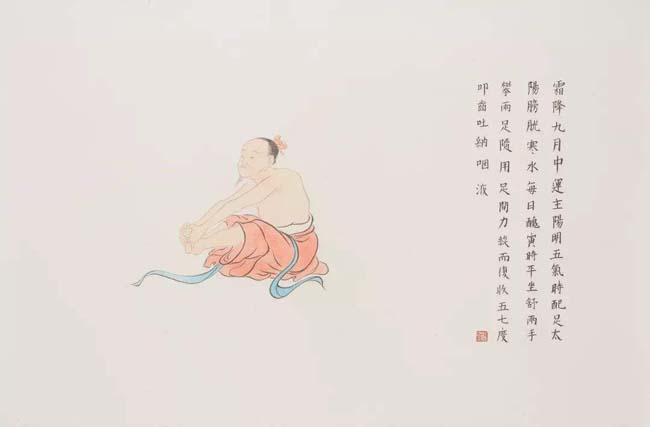 霜降九月中運主陽明五氣時配足太
陽膀胱寒水每日醜寅時平坐舒兩手
攀兩足隨用足間力縱而復收五七度
叩齒吐納咽液